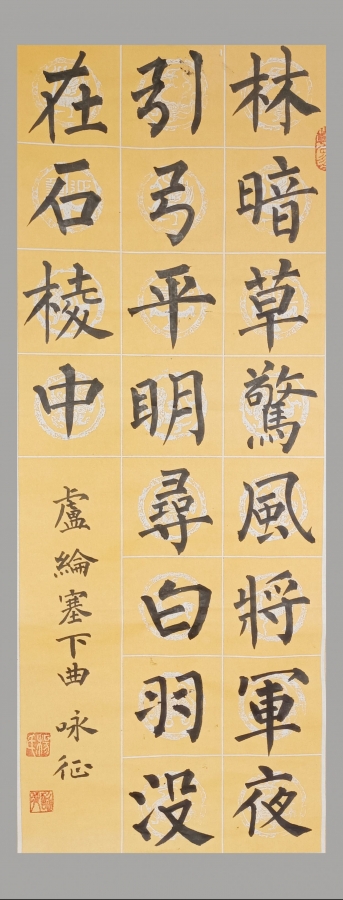 林暗草驚風將軍夜
引弓平明尋白羽没
在石棱中
盧綸塞下曲 咏征